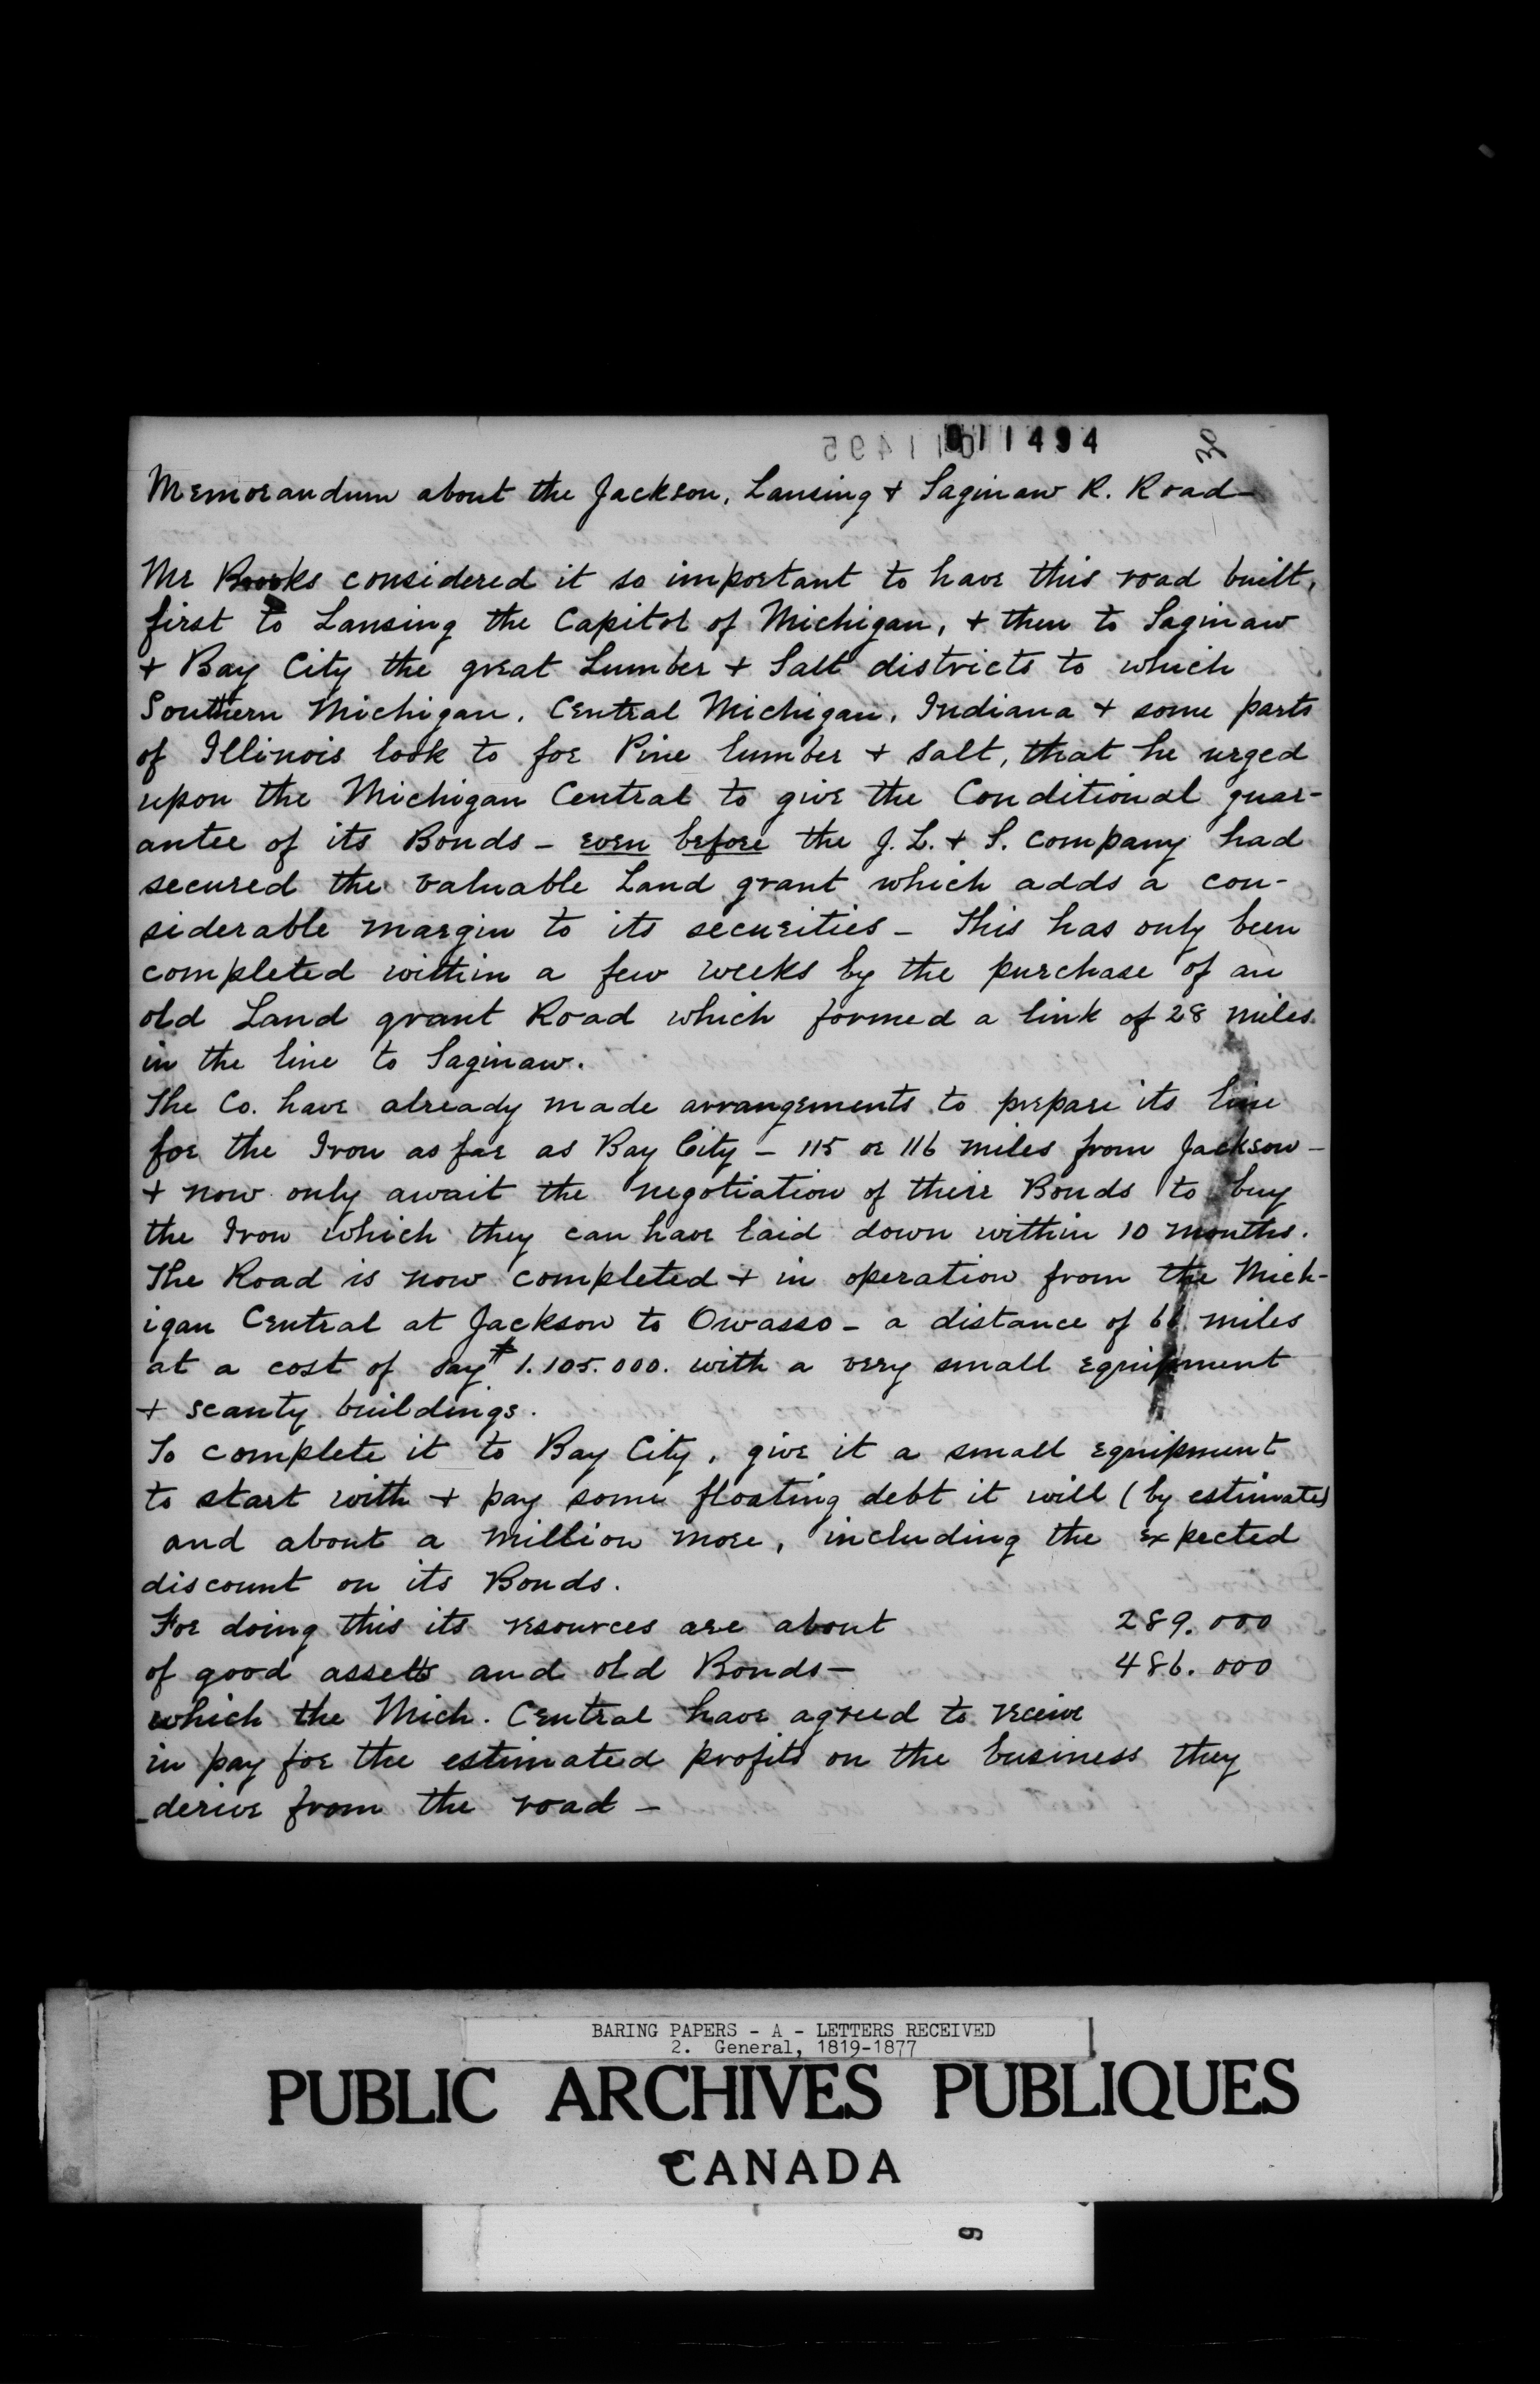 011494
30
Memorandum about the Jackson, Lansing + Saginaw R. Road—
Mr Brooks considered it so important to have this road built,
first to Lansing the Capitol of Michigan, + then to Saginaw
+ Bay City the great Lumber + Salt districts to which
Southern Michigan, Central Michigan, Indiana + some parts
of Illinois look to for Pine lumber + Salt, that he urged
upon the Michigan Central to give the Conditional guar-
antee of its Bonds — even before the J. L. + S. company had
secured the valuable Land grant which adds a con-
siderable margin to its securities — This has only been
completed within a few weeks by the purchase of an
old Land grant Road which formed a link of 28 miles
in the line to Saginaw.
The Co. have already made arrangements to prepare its line
for the Iron as far as Bay City — 115 or 116 miles from Jackson —
+ now only await the negotiation of their Bonds to buy
the Iron which they can have laid down within 10 months.
The Road is now completed + in operation from the Mich-
igan Central at Jackson to Owasso — a distance of 66 miles
at a cost of say $1.105.000. with a very small equipment
+ scanty buildings.
To complete it to Bay City, give it a small equipment
to start with + pay some floating debt it will (by estimates)
and about a million more, including the expected
discount on its Bonds.
For doing this its resources are about 289.000
of good assets and old Bonds — 486.000
which the Mich. Central have agreed to receive
in pay for the estimated profits on the business they
derive from the road —
BARING PAPERS - A - LETTERS RECEIVED
2. General, 1819-1877
PUBLIC ARCHIVES PUBLIQUES
CANADA